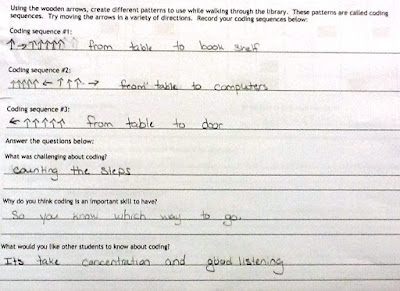 Using the wooden arrows, create different patterns to use while walking through the library. These patterns are called coding
sequences. Try moving the arrows in a variety of directions. Record your coding sequences below:
Coding sequence #1:
↑→↑↑↑↑↑ from table to book shelf
Coding sequence #2:
↑↑↑↑↑ ← ↑↑↑ → from table to computers
Coding sequence #3:
←↑↑↑↑↑ from table to door
Answer the questions below:
What was challenging about coding?
counting the steps
Why do you think coding is an important skill to have?
So you know which way to go.
What would you like other students to know about coding?
Its take concentration and good listening